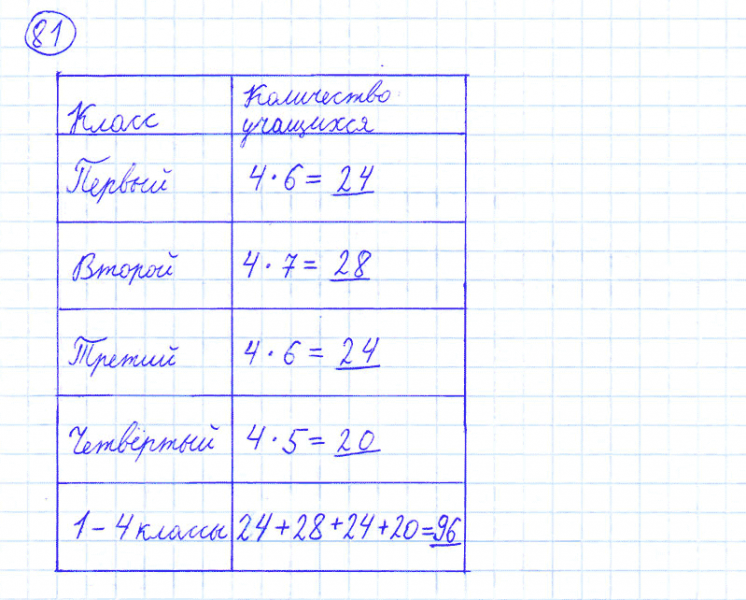 81
Класс
Количество
учащихся
Первый
4·6= 24
Второй
4·7= 28
Третий
4·6= 24
Четвёртый
4·5= 20
1–4 классы
24+28+24+20=96